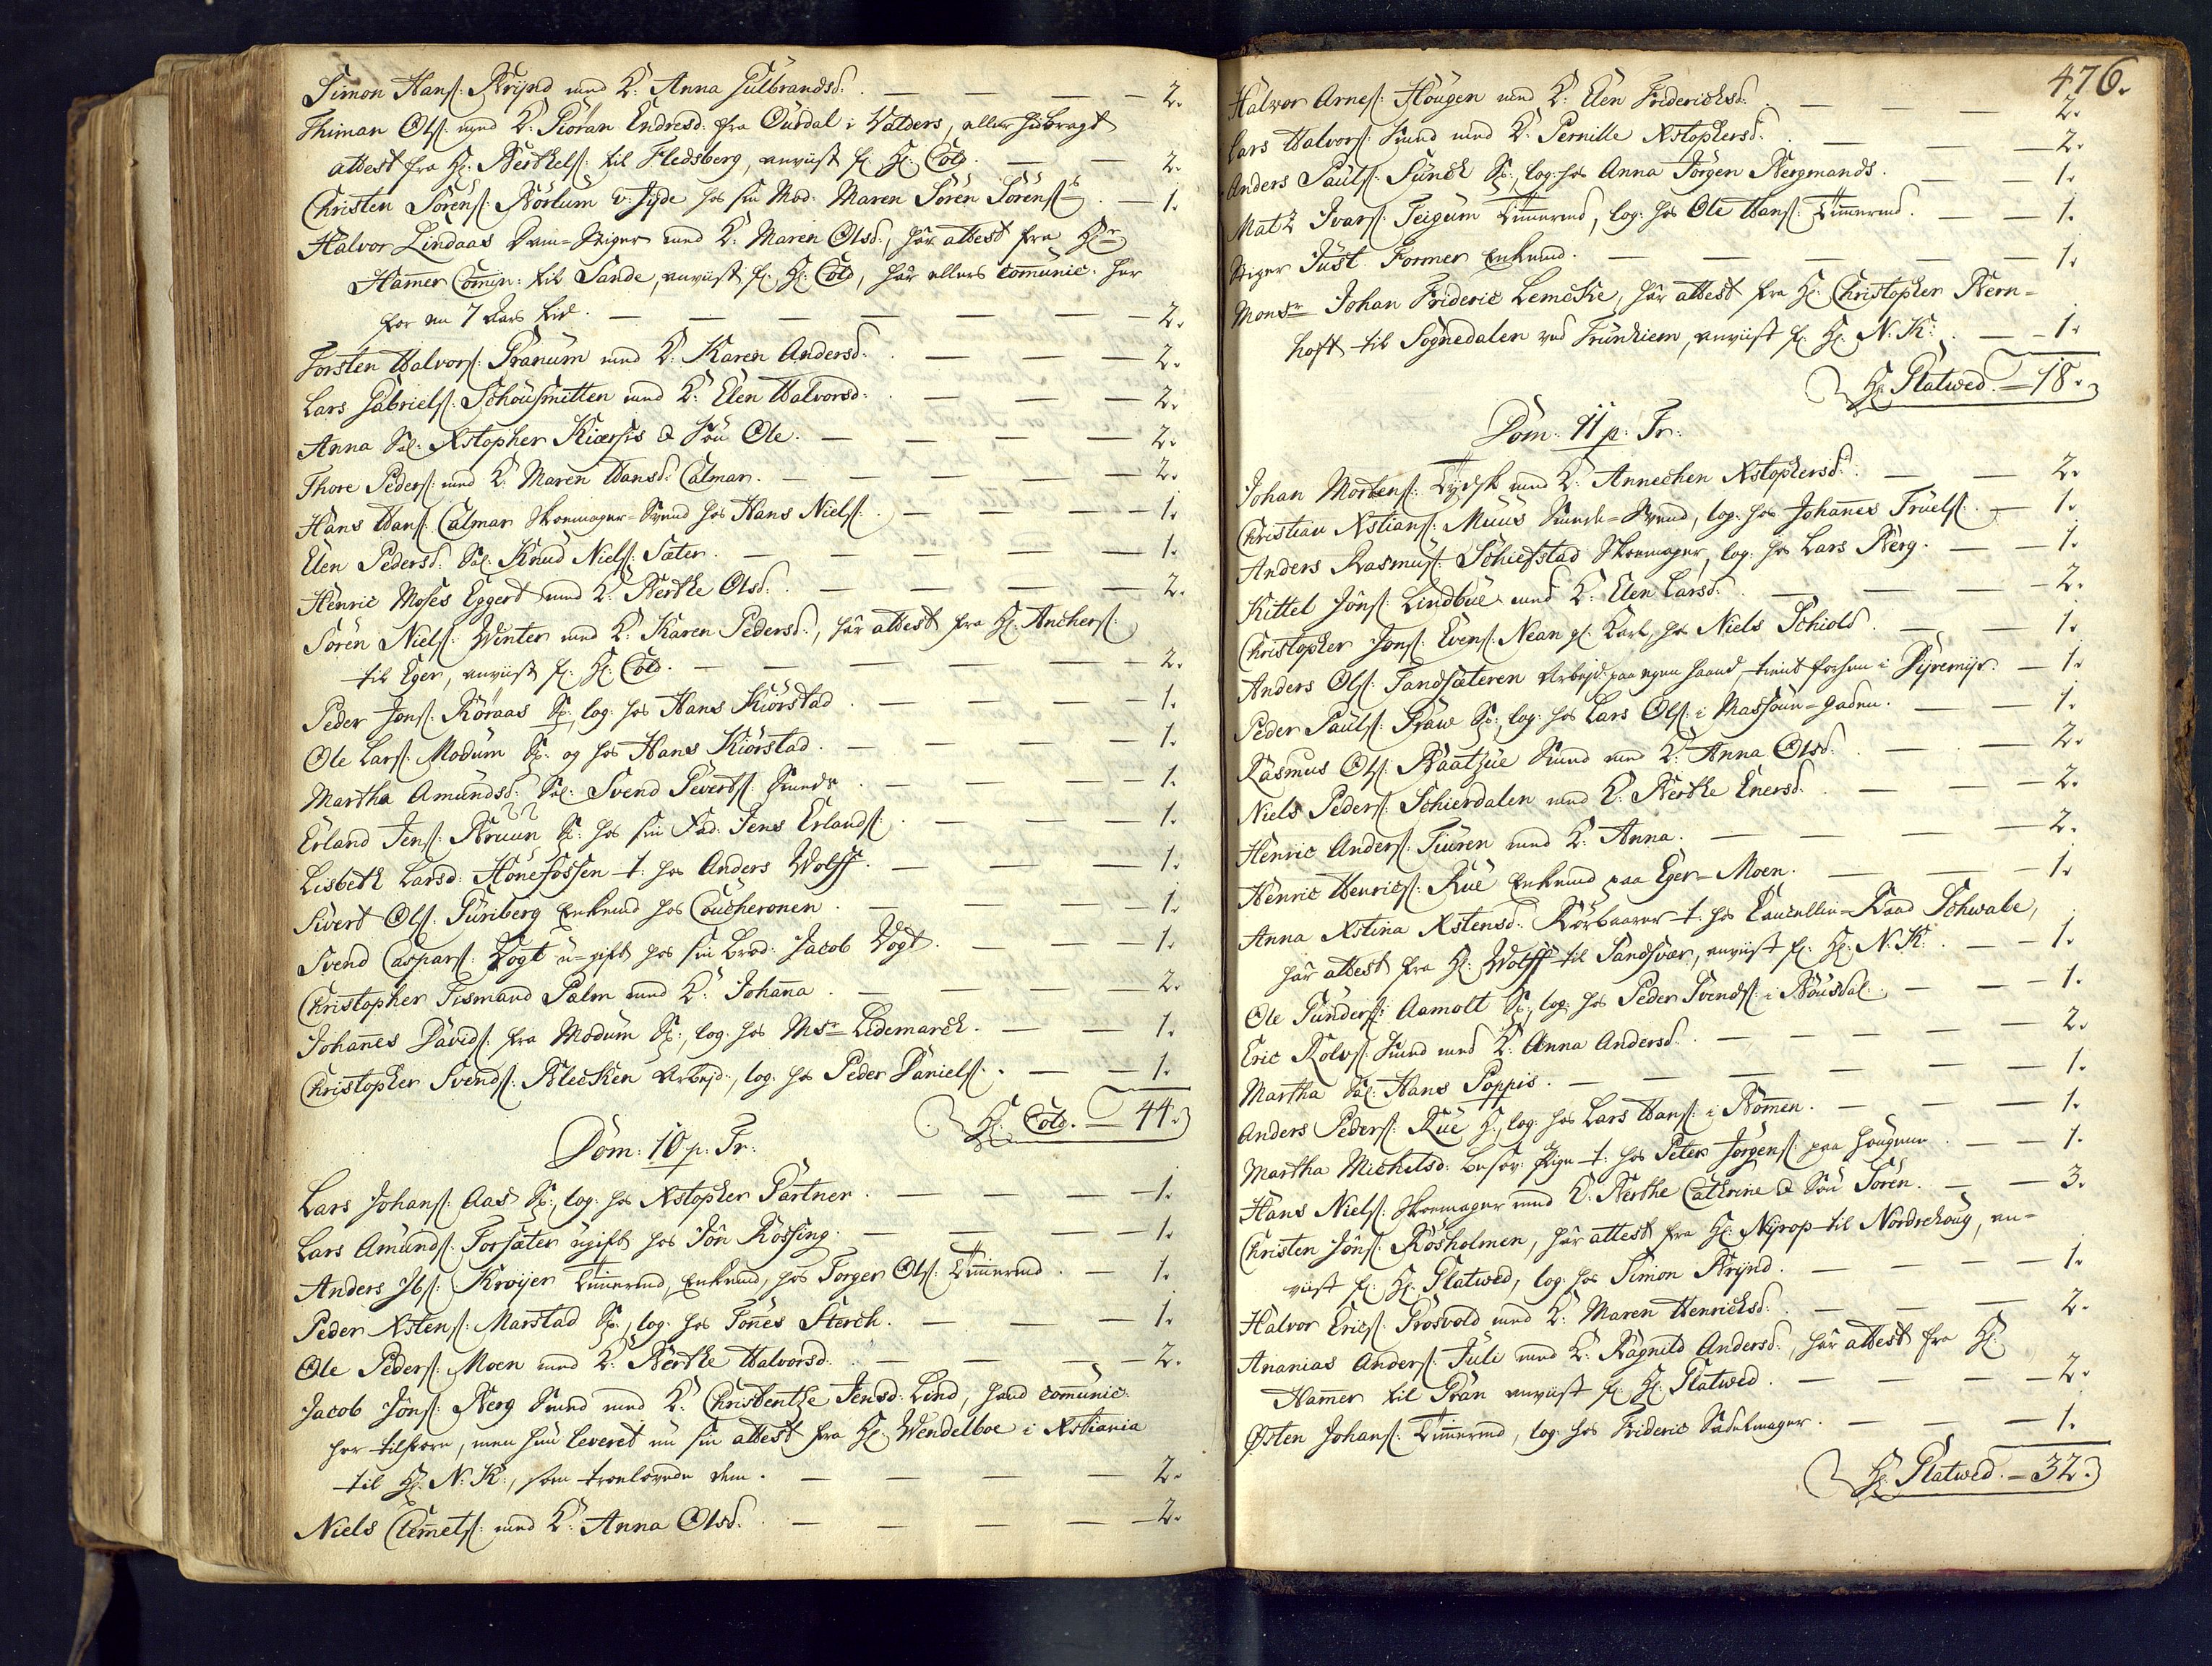 Simon Hans: Brÿnd med K: Anna Gulbrandsd: — 2.
Thiman Ols: med K: Giöran Endresd: fra Ourdal i Walders, eller hidbragt
attest fra Hr: Berthels: til Flesberg, anviist f: Hr: Cold. — 2.
Christen Sörens: Börlum v: Syge hos sin Mod: Maren Sören Sörens: — 1.
Halvor Lindaas Dam-Stiger med K: Maren Olsd:, har attest fra Hr:
Hamer Comin: til Sande, anviist f: Hr: Cold, har ellers comunic: her
for en 7 Aars tid. — 2.
Torsten Halvors: Granum med K: Karen Andersd: — 2.
Lars Gabriels: Schousmitten med K: Elen Halvorsd: — 2.
Anna Sal: Xstopher Kiærsis & Sön Ole. — 2.
Thore Peders: med K: Maren Hansd: Calmar. — 2.
Hans Hans: Calmar Skoemager-Svend hos Hans Niels: — 1.
Elen Pedersd: Sal: Knud Niels: Sæter. — 1.
Henric Moses Eggert med K: Berthe Olsd: — 2.
Sören Niels: Winter med K: Karen Pedersd:, har attest fra Hr: Anchers:
til Eger, anviist f: Hr: Cold. — 2.
Peder Jons: Röraas Sp:, log: hos Hans Kiörstad. — 1.
Ole Lars: Modum Sp: og hos Hans Kiörstad. — 1.
Martha Amundsd: Sal: Svend Siverts: Smeds. — 1.
Erland Jens: Bruun Sp: hos sin Fad: Jens Erlands: — 1.
Lisbeth Larsd: Hönefossen t: hos Anders Wolff. — 1.
Sivert Ols: Turiberg Enkemd hos Coucheronen. — 1.
Svend Caspars: Vogt u-gift hos sin Brod: Jacob Vogt. — 1.
Christopher Tismand Palm med K: Johanna. — 2.
Johannes Davids: fra Modum Sp:, log: hos Msr Lidemarck. — 1.
Christopher Svends: Blecken Arbejd:, log: hos Peder Daniels: — 1.
Hr: Cold. — 44.
Dom: 10 p: Tr:
Lars Johans: Aas Sp:, log: hos Xstopher Gartner. — 1.
Lars Amunds: Forsæter ugift hos Jon Rössing. — 1.
Anders Ibs: Kroijer Timermd, Enkemd, hos Torger Ols: Timermd. — 1.
Peder Xstens: Marstad Sp:, log: hos Tönes Sterch. — 1.
Ole Peders: Moen med K: Berthe Halvorsd: — 2.
Jacob Jöns: Berg Smed med K: Christentze Jensd: Lind, hand comunic:
her tilforn, men hun leveret nu sin attest fra Hr: Wendelboe i Xstiania
til Hr: N: K:, som troelovede dem. — 2.
Niels Clemets: med K: Anna Olsd: — 2.
476.
Halvor Arnes: Hougen med K: Elen Fridericksd: — 2.
Lars Halvors: Smed med K: Pernille Xstophersd: — 2.
Anders Pauls: Funck Sp:, log: hos Anna Jörgen Bergmands. — 1.
Matz Ivars: Teigum Timermd, log: hos Ole Hans: Timermd. — 1.
Stiger Just Former Enkemd. — 1.
Monsr Johan Frideric Lemcke, har attest fra Hr: Christopher Bern-
hoft til Sognedalen ved Trunhiem, anviist f: Hr: N: K: — 1.
Hr: Platwed. — 18.
Dom: 11 p: Tr:
Johan Mortens: Tydsk med K: Annechen Xstophersd: — 2.
Christian Xstians: Muus Smede-Svend, log: hos Johannes Truels: — 1.
Anders Rasmus: Schiefstad Skoemager, log: hos Lars Berg. — 1.
Kittel Jöns: Lindbüe med K: Elen Larsd: — 2.
Christopher Jons: Evens: Nean gl: Karl, hos Niels Schiold. — 1.
Anders Ols: Tandsæteren Arbejd: paa egen haand, tient forhen i Dyremyr. — 1.
Peder Pauls: Braw Sp:, log: hos Lars Ols: i Massoun-gaden. — 1.
Rasmus Ols: Baatzüe Smed med K: Anna Olsd: — 2.
Niels Peders: Schierdalen med K: Berthe Enersd: — 2.
Henric Anders: Fiuren med K: Anna. — 2.
Henric Henrics: Rüe Enkemd paa Eger-Moen. — 1.
Anna Xstina Xstensd: Rörbaarer t: hos Cancellie-Raad Schwabe,
har attest fra Hr: Wolff til Sandsvær, anviist f: Hr: N: K: — 1.
Ole Gunders: Aamolt Sp:, log: hos Peder Svends: i Bousdal. — 1.
Eric Rolvs: Smed med K: Anna Andersd: — 2.
Martha Sal: Hans Poppis. — 1.
Anders Peders: Rüe H:, log: hos Lars Hans: i Bommen. — 1.
Martha Michelsd: besov: Pige t: hos Peter Jörgens: paa Hougene. — 1.
Hans Niels: Skoemager med K: Berthe Cathrine & Sön Sören. — 3.
Christen Jöns: Rosholmen, har attest fra Hr: Nyrop til Nordrehoug, an-
viist f: Hr: Platwed, log: hos Simon Brÿnd. — 1.
Halvor Erics: Grosvold med K: Maren Henricksd: — 2.
Ananias Anders: Juli med K: Ragnild Andersd:, har attest fra Hr:
Hamer til Gran anviist f: Hr: Platwed. — 2.
Østen Johans: Timermd, log: hos Frideric Sadelmager. — 1.
Hr: Platwed. — 32.